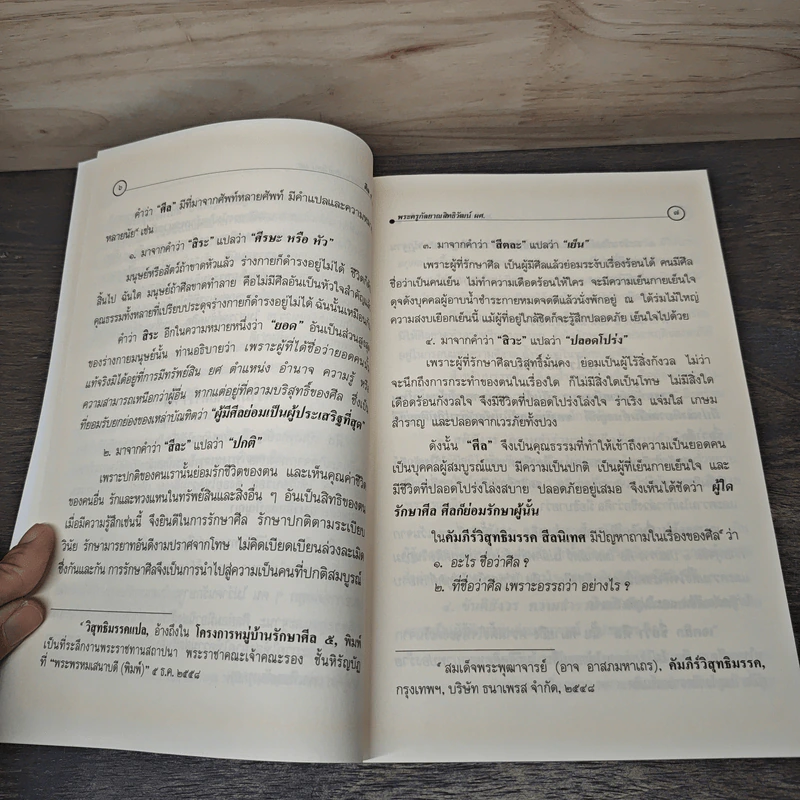 ๖
คำว่า “ศีล” มีที่มาจากศัพท์หลายศัพท์ มีคำแปลและความหมาย
หลายนัย เช่น
๑. มาจากคำว่า “สิระ” แปลว่า “ศีรษะ หรือ หัว”
มนุษย์หรือสัตว์ถ้าขาดหัวแล้ว ร่างกายก็ดำรงอยู่ไม่ได้ ชีวิตก็
สิ้นไป ฉันใด มนุษย์ถ้าศีลขาดทำลาย คือไม่มีศีลอันเป็นหัวใจสำคัญ
คุณธรรมทั้งหลายที่เปรียบประดุจร่างกายก็ดำรงอยู่ไม่ได้ ฉันนั้นเหมือน
คำว่า สิระ อีกในความหมายหนึ่งว่า “ยอด” อันเป็นส่วน
ของร่างกายมนุษย์นั้น ท่านอธิบายว่า เพราะผู้ที่ได้ชื่อว่ายอดคน
แท้จริงมิได้อยู่ที่การมีทรัพย์สิน ยศ ตำแหน่ง อำนาจ ความรู้
ความสามารถเหนือกว่าผู้อื่น หากแต่อยู่ที่ความบริสุทธิ์ของศีล
ที่ยอมรับยกย่องของเหล่าบัณฑิตว่า “ผู้มีศีลย่อมเป็นผู้ประเสริฐที่สุด”
๒. มาจากคำว่า “สีละ” แปลว่า “ปกติ”
เพราะปกติของคนเรานั้นย่อมรักชีวิตของตน และเห็นคุณค่าชีวิต
ของคนอื่น รักและหวงแหนในทรัพย์สินและสิ่งอื่น ๆ อันเป็นสิทธิของตน
เมื่อมีความรู้สึกเช่นนี้ จึงยินดีในการรักษาศีล รักษาปกติตามระเบียบ
วินัย รักษามารยาทอันดีงามปราศจากโทษ ไม่คิดเบียดเบียนล่วงละเมิด
ซึ่งกันและกัน การรักษาศีลจึงเป็นการนำไปสู่ความเป็นคนที่ปกติสมบูรณ์
วิสุทธิมรรคแปล, อ้างถึงใน โครงการหมู่บ้านรักษาศีล ๕, พิมพ์
เป็นที่ระลึกงานพระราชทานสถาปนา พระราชาคณะเจ้าคณะรอง ชั้นหิรัญบัฏ
ที่ “พระพรหมเสนาบดี (พิมพ์)” ๕ ธ.ค. ๒๕๕๘
พระครูกัลยาณสิทธิวัฒน์ ผศ. ๗
๓. มาจากคำว่า “สีตละ” แปลว่า “เย็น”
เพราะผู้ที่รักษาศีล เป็นผู้มีศีลแล้วย่อมระงับเรื่องร้อนได้ คนมีศีล
ชื่อว่าเป็นคนเย็น ไม่ทำความเดือดร้อนให้ใคร จะมีความเย็นกายเย็นใจ
ดุจดังบุคคลผู้อาบน้ำชำระกายหมดจดดีแล้วนั่งพักอยู่ ณ ใต้ร่มไม้ใหญ่
ความสงบเยือกเย็นนี้ แม้ผู้ที่อยู่ใกล้ชิดก็จะรู้สึกปลอดภัย เย็นใจไปด้วย
๔. มาจากคำว่า “สิวะ” แปลว่า “ปลอดโปร่ง”
เพราะผู้ที่รักษาศีลบริสุทธิ์มั่นคง ย่อมเป็นผู้ไร้สิ่งกังวล ไม่ว่า
จะนึกถึงการกระทำของตนในเรื่องใด ก็ไม่มีสิ่งใดเป็นโทษ ไม่มีสิ่งใด
เดือดร้อนกังวลใจ จึงมีชีวิตที่ปลอดโปร่งโล่งใจ ร่าเริง แจ่มใส เกษม
สำราญ และปลอดจากเวรภัยทั้งปวง
ดังนั้น “ศีล” จึงเป็นคุณธรรมที่ทำให้เข้าถึงความเป็นยอดคน
เป็นบุคคลผู้สมบูรณ์แบบ มีความเป็นปกติ เป็นผู้ที่เย็นกายเย็นใจ และ
มีชีวิตที่ปลอดโปร่งโล่งสบาย ปลอดภัยอยู่เสมอ จึงเห็นได้ชัดว่า ผู้ใด
รักษาศีล ศีลก็ย่อมรักษาผู้นั้น
ในคัมภีร์วิสุทธิมรรค สีลนิเทศ มีปัญหาถามในเรื่องของศีล ว่า
๑. อะไร ชื่อว่าศีล ?
๒. ที่ชื่อว่าศีล เพราะอรรถว่า อย่างไร ?
สมเด็จพระพุฒาจารย์ (อาจ อาสภมหาเถร), คัมภีร์วิสุทธิมรรค,
กรุงเทพฯ, บริษัท ธนาเพรส จำกัด, ๒๕๔๘